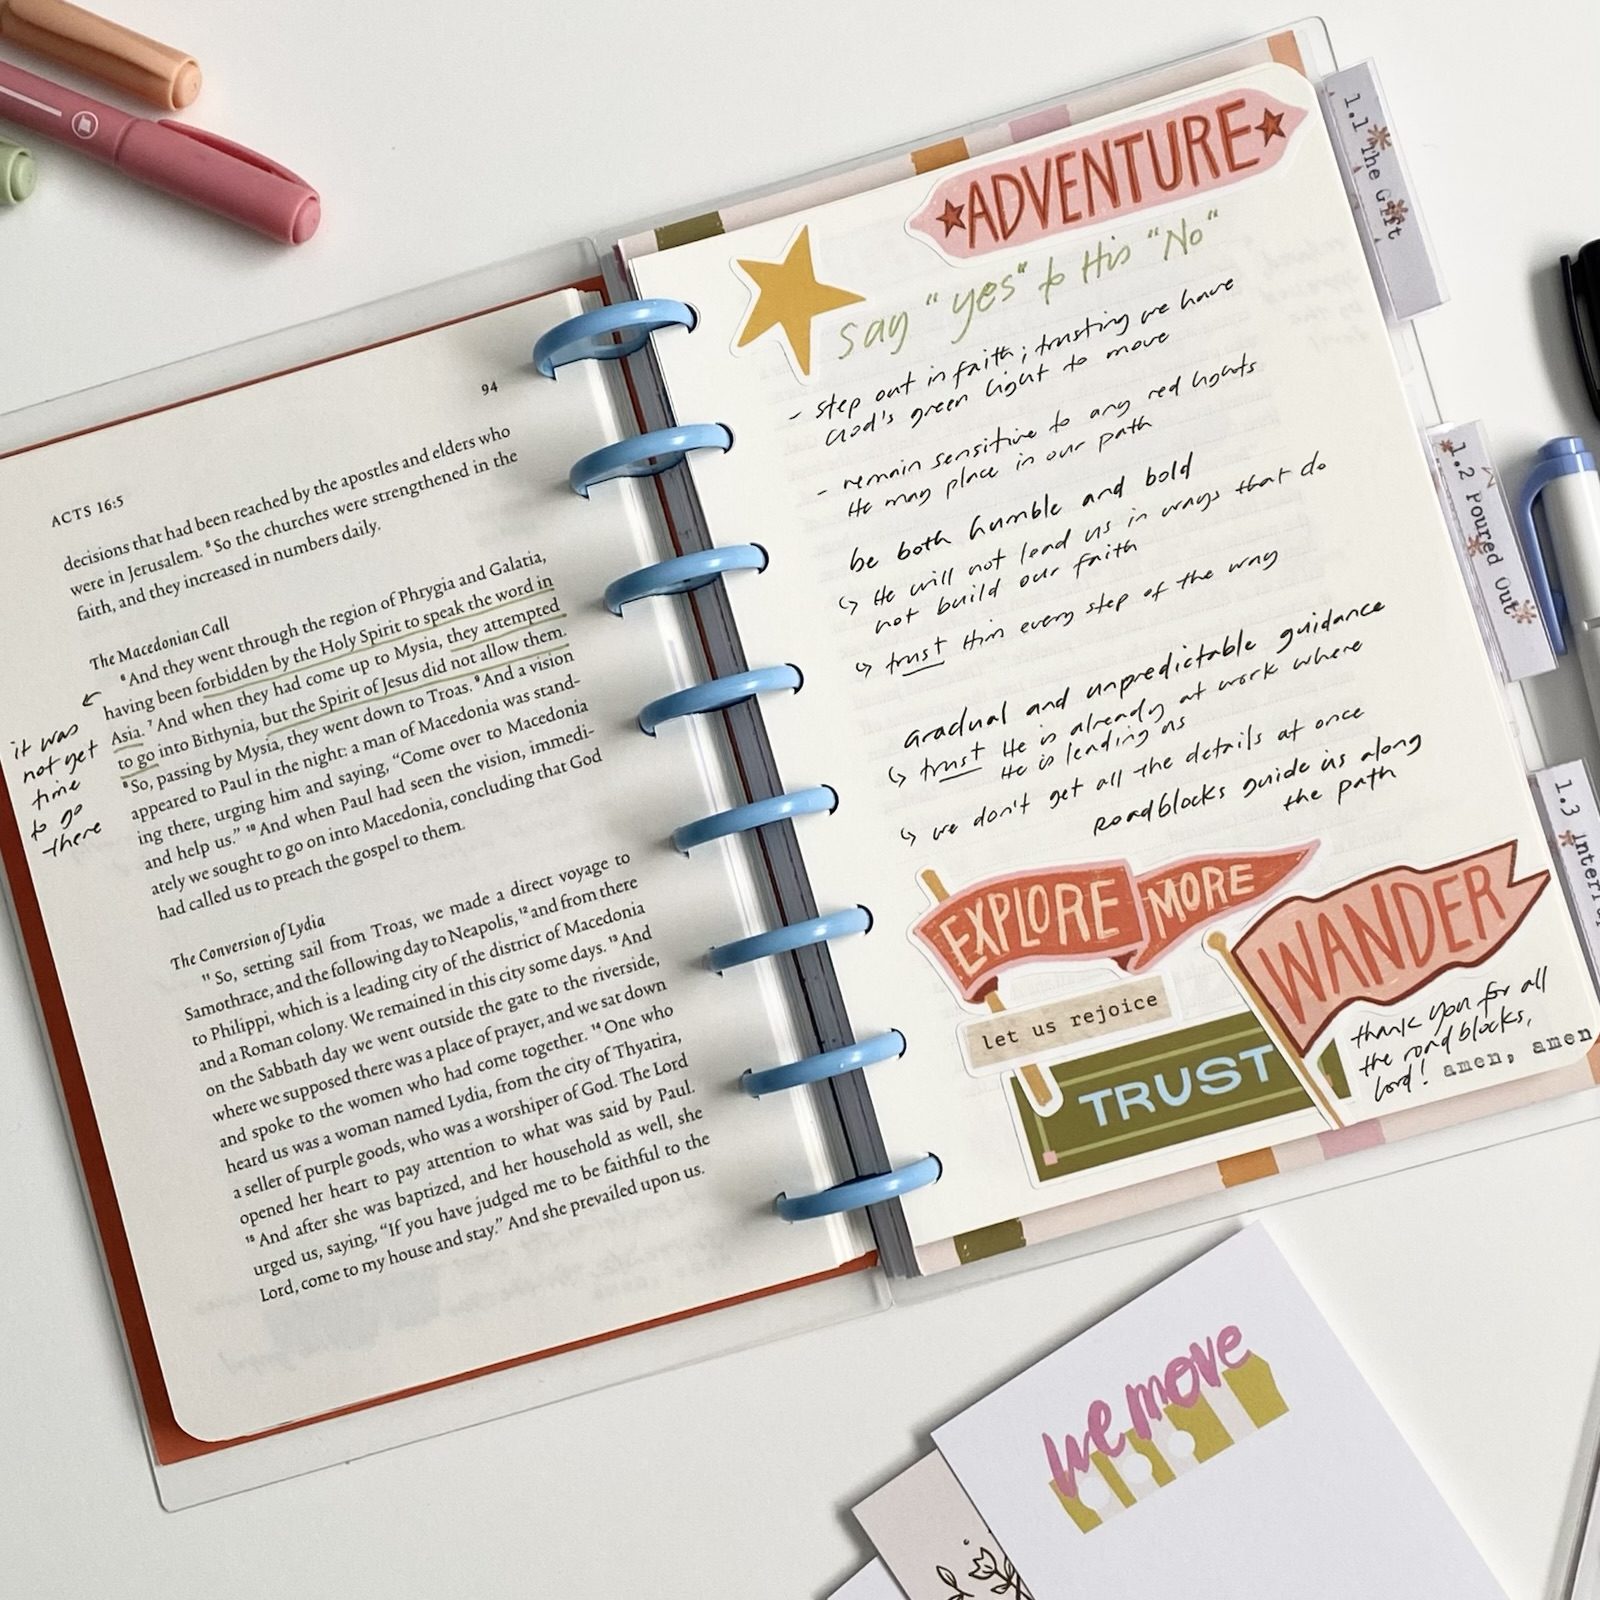 94
ACTS 16:5
decisions that had been reached by the apostles and elders who
were in Jerusalem. ⁵ So the churches were strengthened in the
faith, and they increased in numbers daily.
The Macedonian Call
⁶ And they went through the region of Phrygia and Galatia,
having been forbidden by the Holy Spirit to speak the word in
Asia. ⁷ And when they had come up to Mysia, they attempted
to go into Bithynia, but the Spirit of Jesus did not allow them.
⁸ So, passing by Mysia, they went down to Troas. ⁹ And a vision
appeared to Paul in the night: a man of Macedonia was stand-
ing there, urging him and saying, “Come over to Macedonia
and help us.” ¹⁰ And when Paul had seen the vision, immedi-
ately we sought to go on into Macedonia, concluding that God
had called us to preach the gospel to them.
it was
not yet
time
to go
there
The Conversion of Lydia
¹¹ So, setting sail from Troas, we made a direct voyage to
Samothrace, and the following day to Neapolis, ¹² and from there
to Philippi, which is a leading city of the district of Macedonia
and a Roman colony. We remained in this city some days. ¹³ And
on the Sabbath day we went outside the gate to the riverside,
where we supposed there was a place of prayer, and we sat down
and spoke to the women who had come together. ¹⁴ One who
heard us was a woman named Lydia, from the city of Thyatira,
a seller of purple goods, who was a worshiper of God. The Lord
opened her heart to pay attention to what was said by Paul.
¹⁵ And after she was baptized, and her household as well, she
urged us, saying, “If you have judged me to be faithful to the
Lord, come to my house and stay.” And she prevailed upon us.
ADVENTURE
say "yes" to His "No"
- step out in faith; trusting we have
God's green light to move
- remain sensitive to any red lights
He may place in our path
be both humble and bold
↳ He will not lead us in ways that do
not build our faith
↳ trust Him every step of the way
Gradual and unpredictable guidance
↳ trust He is already at work where
He is leading us
↳ we don't get all the details at once
Roadblocks guide us along
the path
EXPLORE MORE
WANDER
let us rejoice
TRUST
thank you for all
the roadblocks,
Lord! amen, amen
1.1 The Gift
1.2 Poured Out
1.3
we move